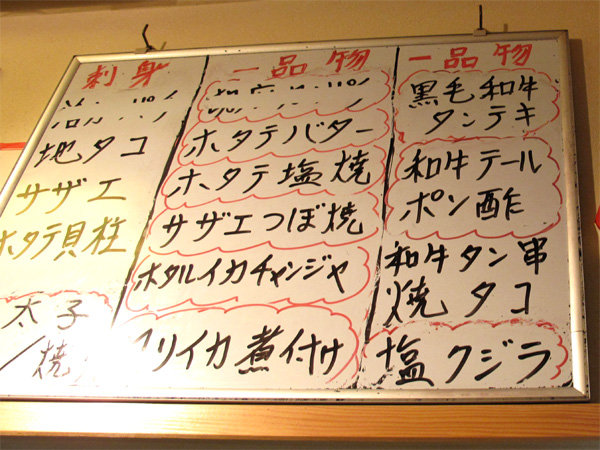 刺身
地タコ
サザエ
ホタテ貝柱
太子
焼
一品物
ホタテバター
ホタテ塩焼
サザエつぼ焼
ホタルイカチャンジャ
リイカ煮付け
一品物
黒毛和牛
タンテキ
和牛テール
ポン酢
和牛タン串
焼タコ
塩クジラ